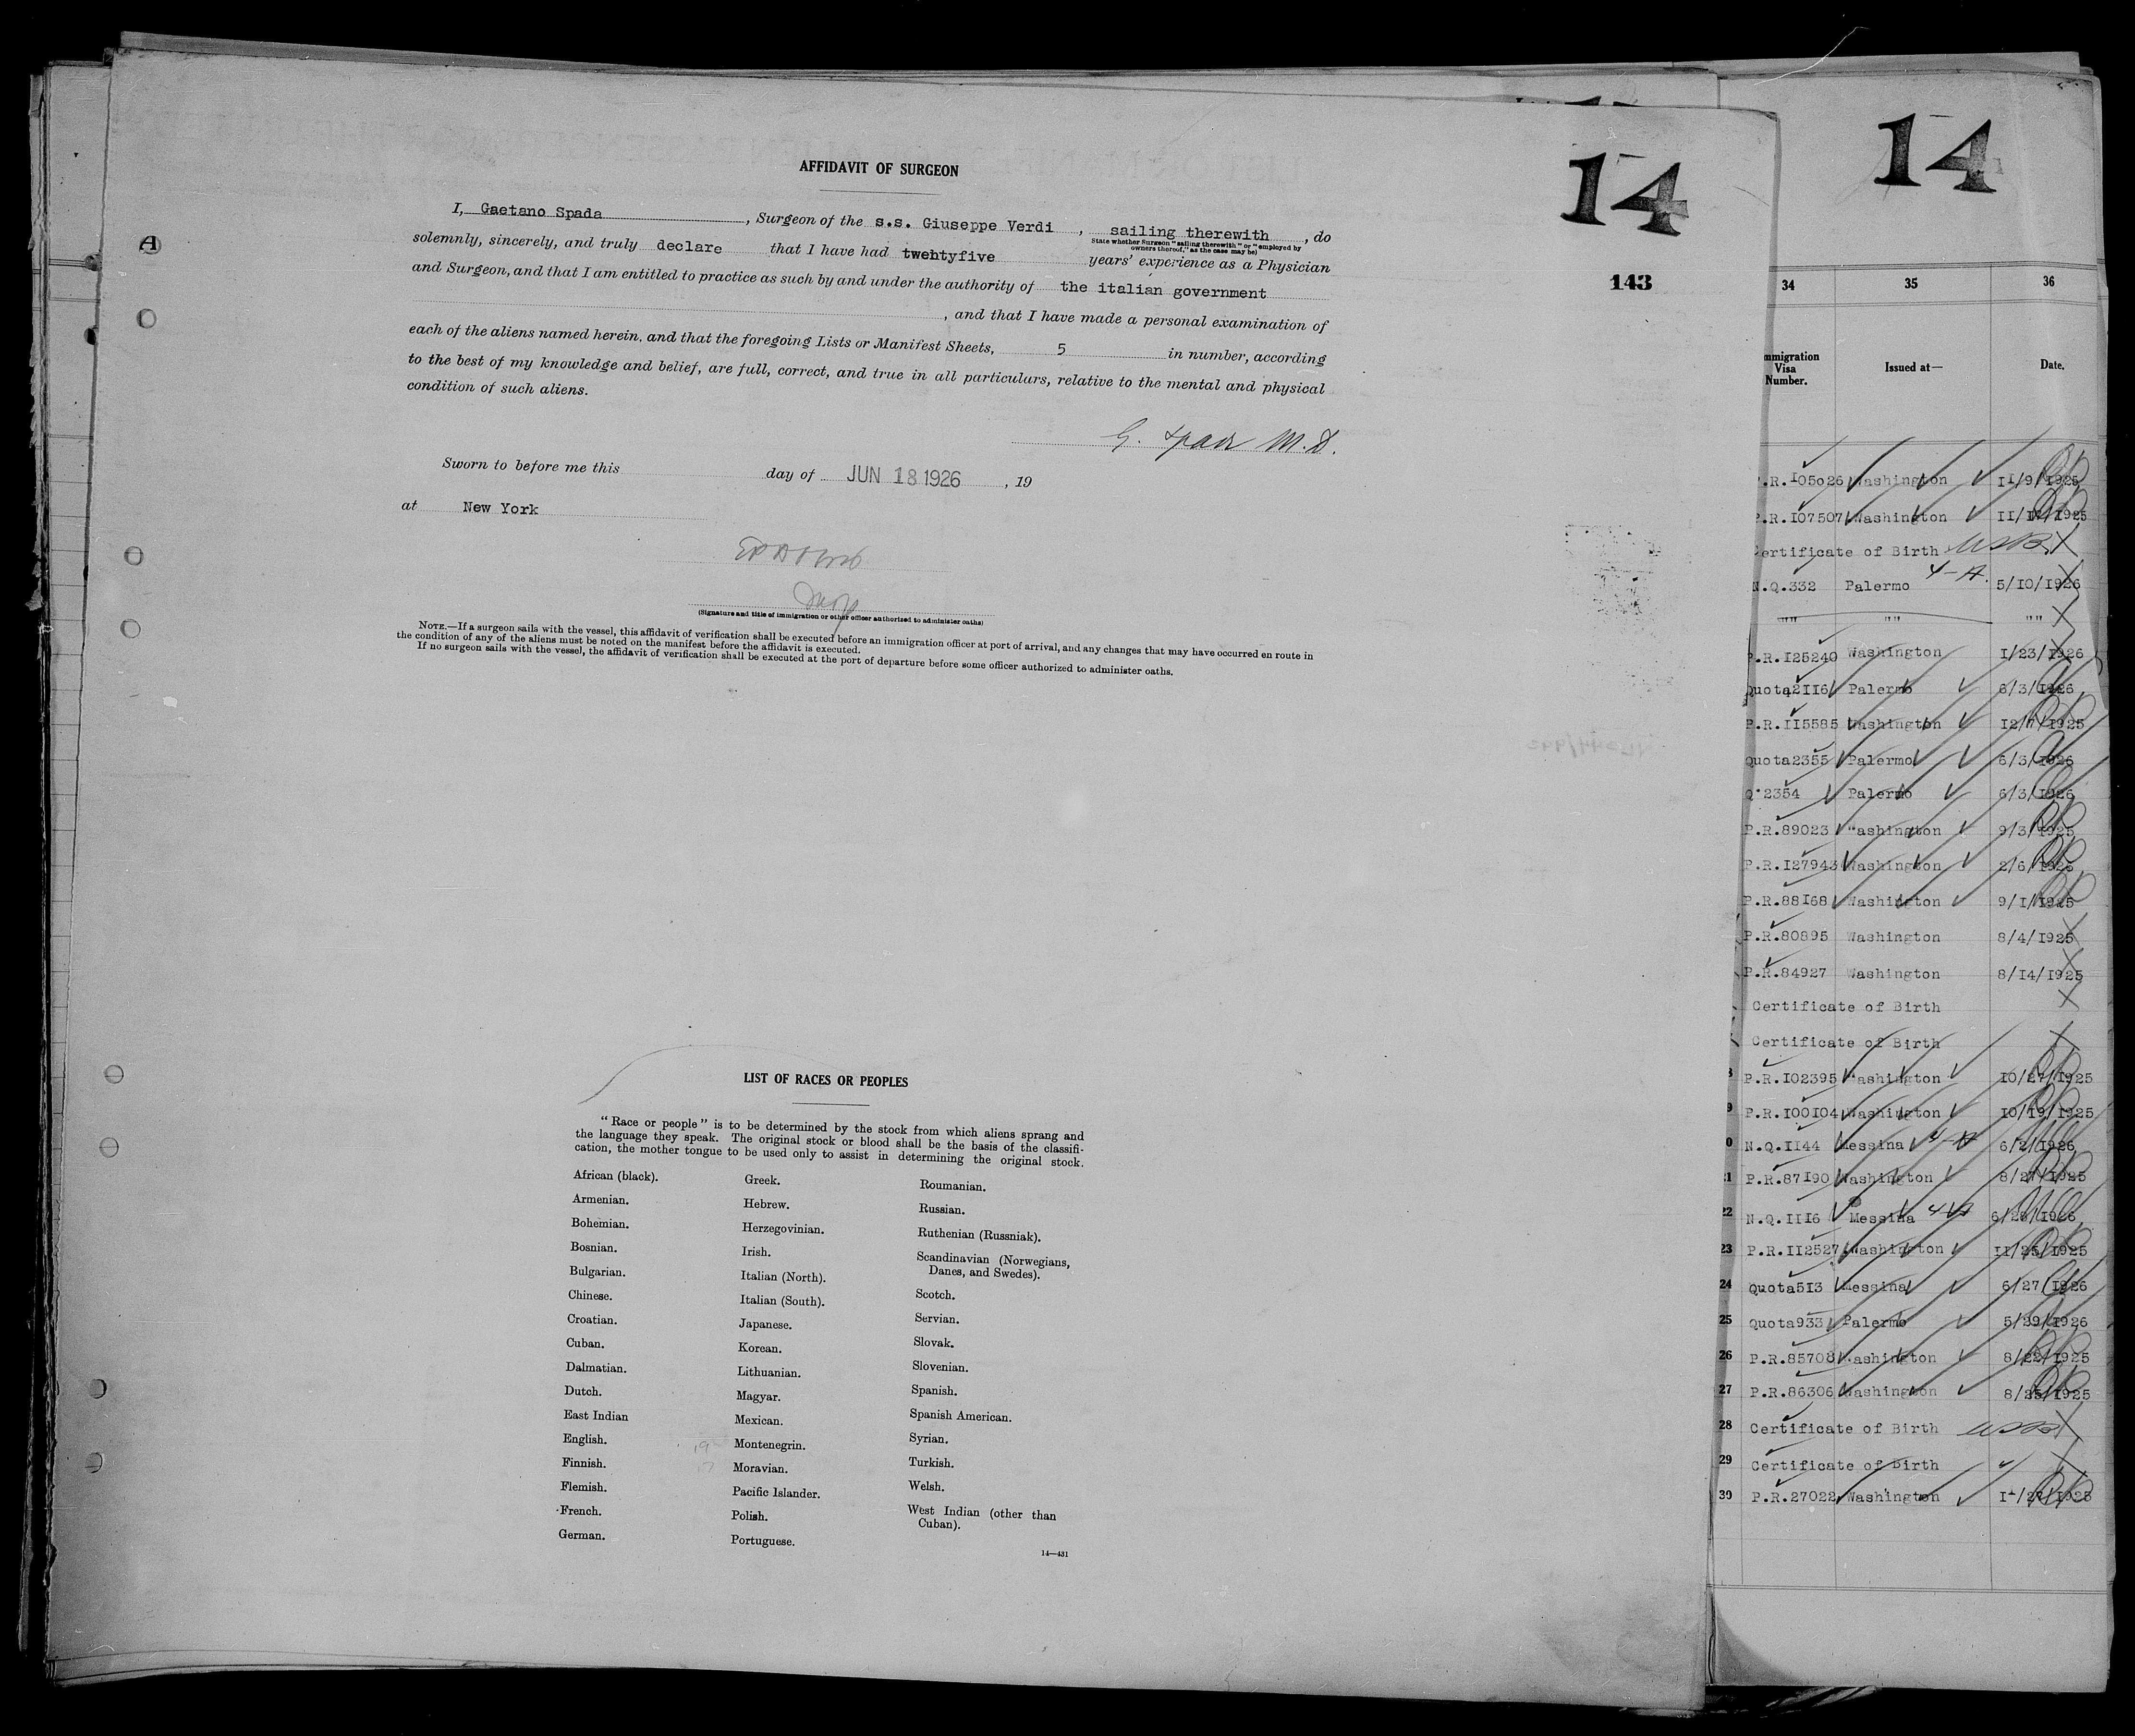 14
14
AFFIDAVIT OF SURGEON
I, Gaetano Spada, Surgeon of the s.s. Giuseppe Verdi, sailing therewith, do
State whether Surgeon "sailing therewith" or "employed by
owners thereof," as the case may be)
solemnly, sincerely, and truly declare that I have had twehtyfive years' experience as a Physician
and Surgeon, and that I am entitled to practice as such by and under the authority of the italian government
, and that I have made a personal examination of
each of the aliens named herein, and that the foregoing Lists or Manifest Sheets, 5 in number, according
to the best of my knowledge and belief, are full, correct, and true in all particulars, relative to the mental and physical
condition of such aliens.
G. Spada M.D.
Sworn to before me this day of JUN 18 1926, 19
at New York
(Signature and title of immigration or other officer authorized to administer oaths)
NOTE.—If a surgeon sails with the vessel, this affidavit of verification shall be executed before an immigration officer at port of arrival, and any changes that may have occurred en route in
the condition of any of the aliens must be noted on the manifest before the affidavit is executed.
If no surgeon sails with the vessel, the affidavit of verification shall be executed at the port of departure before some officer authorized to administer oaths.
A
143
LIST OF RACES OR PEOPLES
"Race or people" is to be determined by the stock from which aliens sprang and
the language they speak. The original stock or blood shall be the basis of the classifi-
cation, the mother tongue to be used only to assist in determining the original stock.
African (black).
Armenian.
Bohemian.
Bosnian.
Bulgarian.
Chinese.
Croatian.
Cuban.
Dalmatian.
Dutch.
East Indian
English.
Finnish.
Flemish.
French.
German.
Greek.
Hebrew.
Herzegovinian.
Irish.
Italian (North).
Italian (South).
Japanese.
Korean.
Lithuanian.
Magyar.
Mexican.
Montenegrin.
Moravian.
Pacific Islander.
Polish.
Portuguese.
Roumanian.
Russian.
Ruthenian (Russniak).
Scandinavian (Norwegians,
Danes, and Swedes).
Scotch.
Servian.
Slovak.
Slovenian.
Spanish.
Spanish American.
Syrian.
Turkish.
Welsh.
West Indian (other than
Cuban).
14—431
34 35 36
mmigration
Visa
Number.
Issued at—
Date.
.R.105026 Washington 11/9/1925
P.R.107507 Washington 11/ /1925
ertificate of Birth
N.Q.332 Palermo 4-A 5/10/1926
"" "" ""
P.R.125240 Washington 1/23/1926
Quota2116 Palermo 6/3/1926
P.R.115585 Washington 12/7/1925
Quota2355 Palermo 6/3/1926
Q.2354 Palermo 6/3/1926
P.R.89023 "ashington 9/3/1925
P.R.127943 Washington 2/6/1926
P.R.88168 Washington 9/1/1925
P.R.80895 Washington 8/4/1925
P.R.84927 Washington 8/14/1925
Certificate of Birth
Certificate of Birth
8 P.R.102395 Washington 10/27/1925
9 P.R.100104 Washington 10/19/1925
0 N.Q.1144 Messina 4-A 6/2/1926
21 P.R.87190 Washington 8/27/1925
22 N.Q.1116 Messina 4-A 6/ /1926
23 P.R.112527 Washington 11/25/1925
24 Quota513 Messina 6/27/1926
25 Quota933 Palermo 5/29/1926
26 P.R.85708 Washington 8/22/1925
27 P.R.86306 Washington 8/25/1925
28 Certificate of Birth
29 Certificate of Birth
30 P.R.27022 Washington